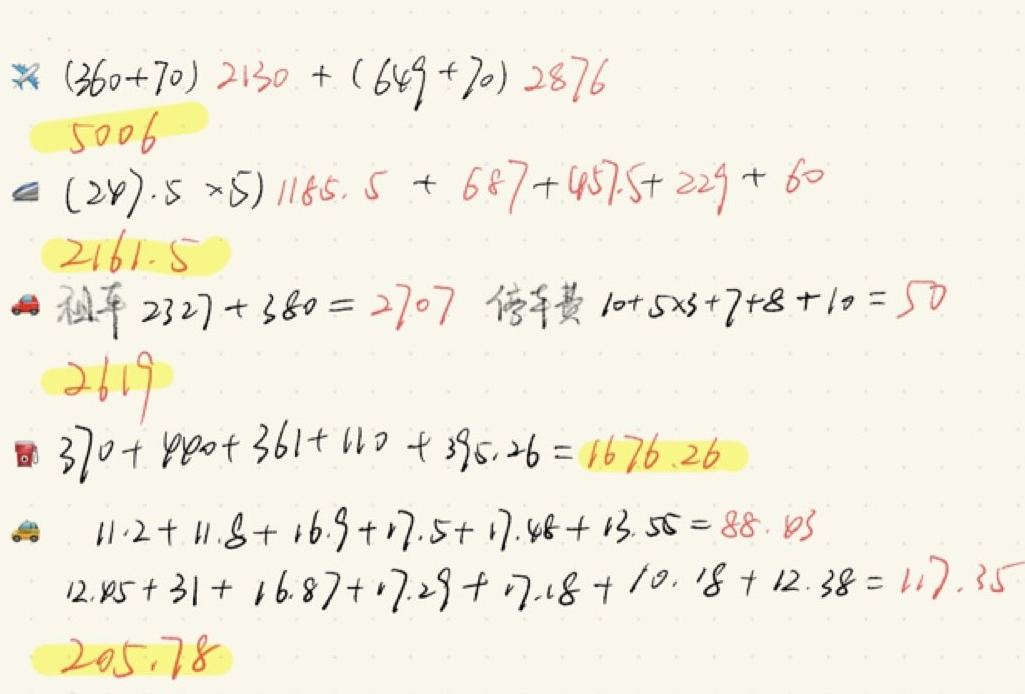 ✈️ (360+70) 2130 + (649+70) 2876
5006
🚄 (247.5 ×5) 1185.5 + 687+457.5+229+60
2161.5
🚗 租车 2327+380=2707 停车费 10+5×3+7+8+10=50
2619
⛽ 370+440+361+110+395.26=1676.26
🚕 11.2+11.8+16.9+17.5+17.48+13.55=88.43
12.45+31+16.87+17.29+17.18+10.18+12.38=117.35
205.78